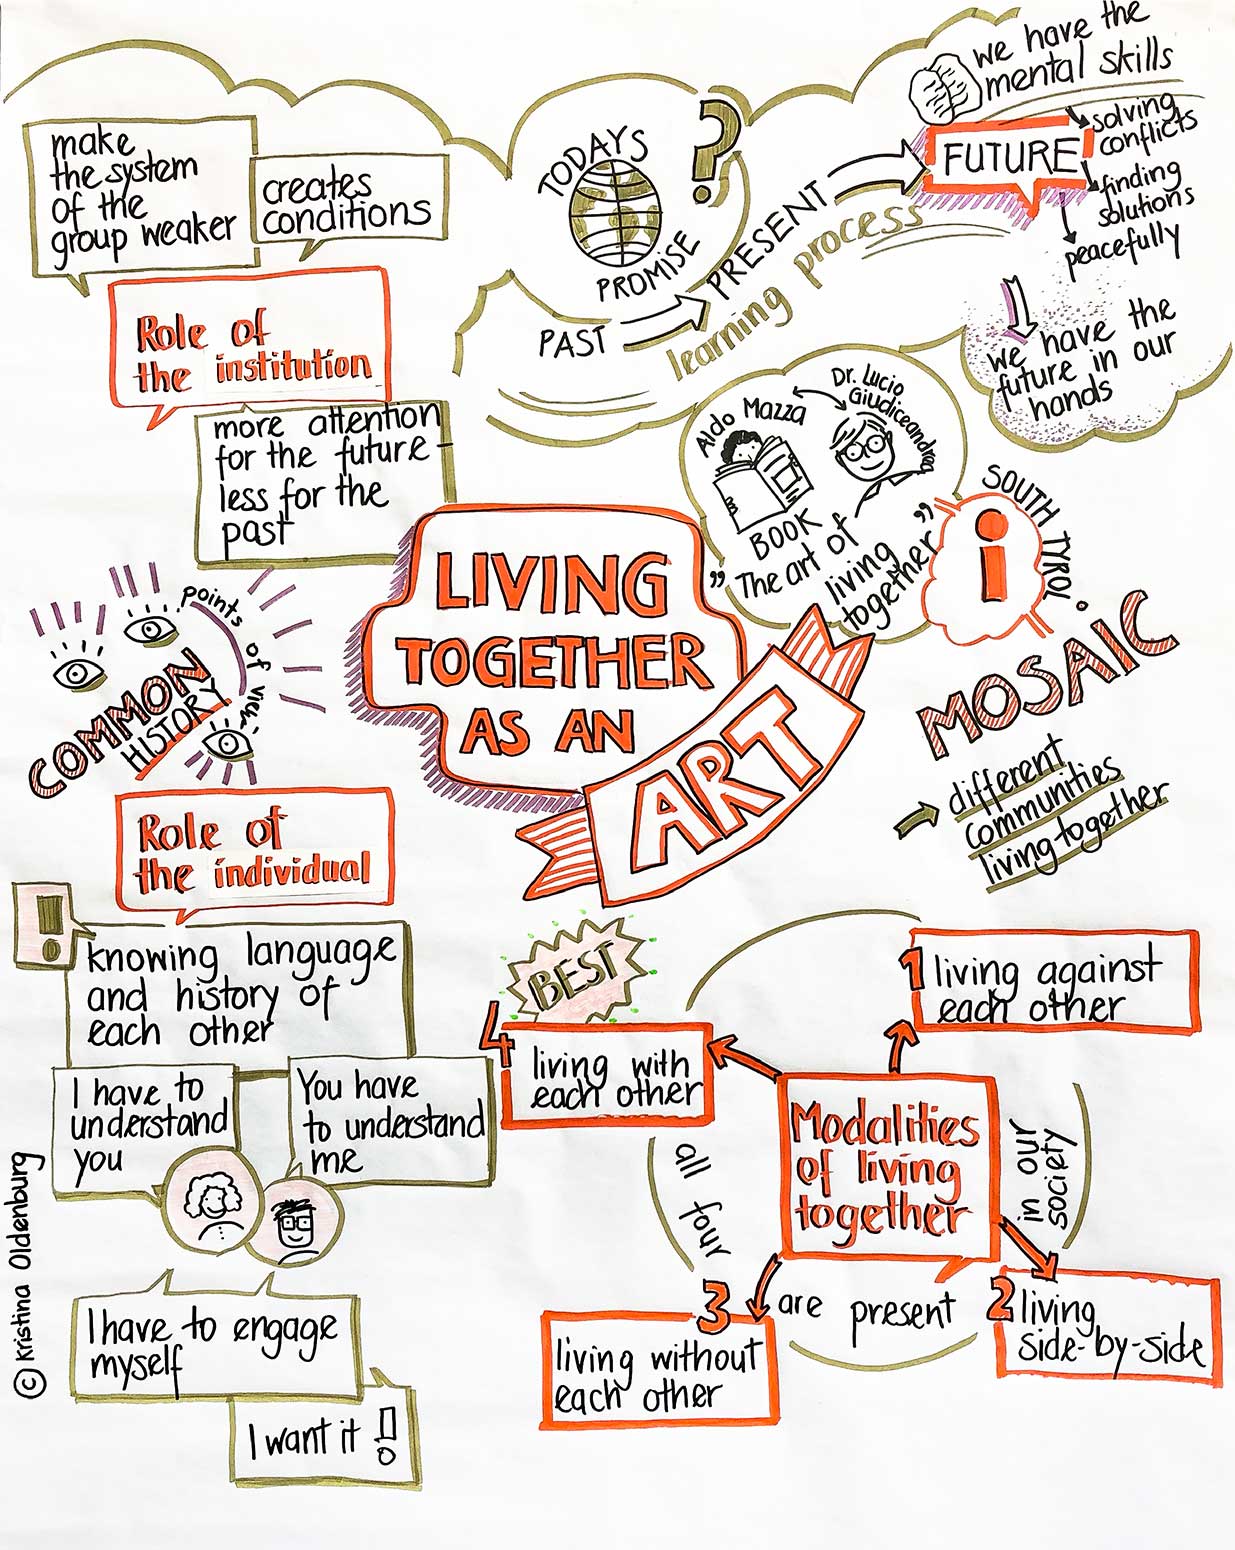 make
the system
of the
group weaker
creates
conditions
Role of
the institution
more attention
for the future -
less for the
past
TODAYS
PROMISE
?
PAST
PRESENT
learning process
FUTURE
we have the
mental skills
solving
conflicts
finding
solutions
peacefully
we have the
future in our
hands
Aldo Mazza
Dr. Lucio
Giudiceandrea
BOOK
„The art of
living
together“
i
SOUTH TYROL
LIVING
TOGETHER
AS AN
ART
points of view
COMMON
HISTORY
MOSAIC
different
communities
living together
Role of
the individual
!
knowing language
and history of
each other
I have to
understand
you
You have
to understand
me
I have to engage
myself
I want it !
© Kristina Oldenburg
Modalities
of living
together
1 living against
each other
2 living
side-by-side
3 living without
each other
BEST
4 living with
each other
all four
are present
in our
society